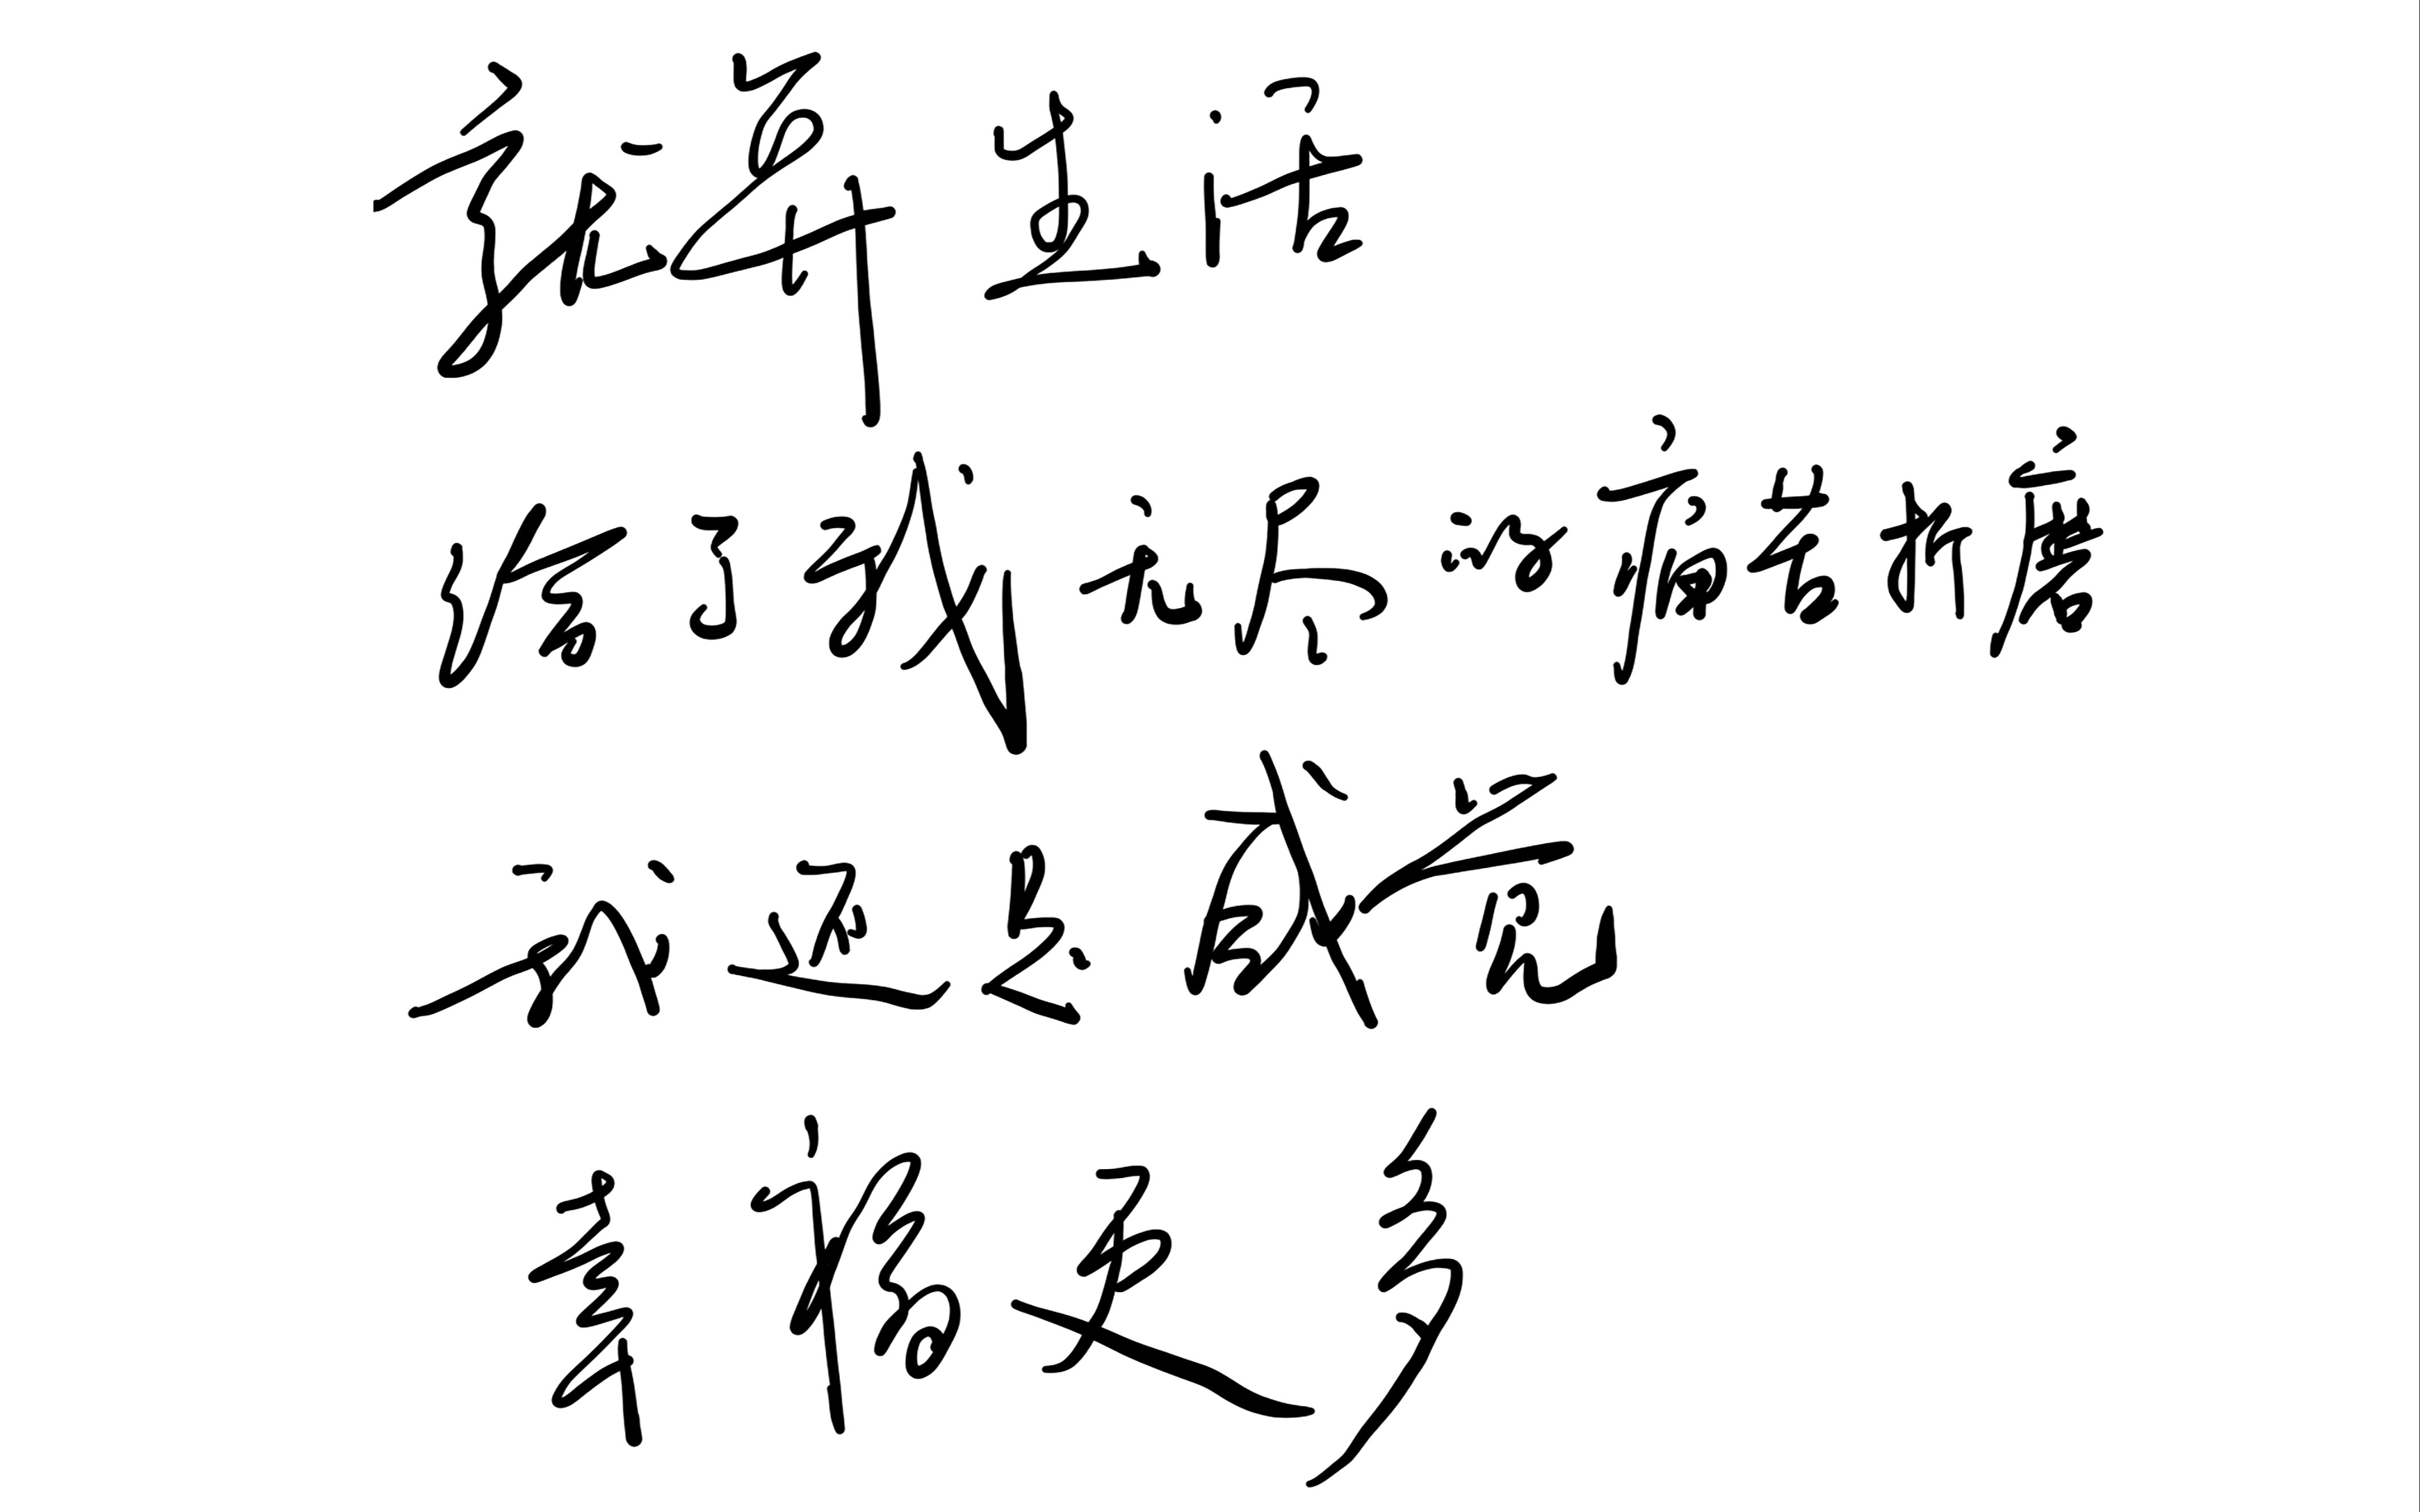 就算生活
给了我无尽的痛苦折磨
我还是感觉
幸福更多